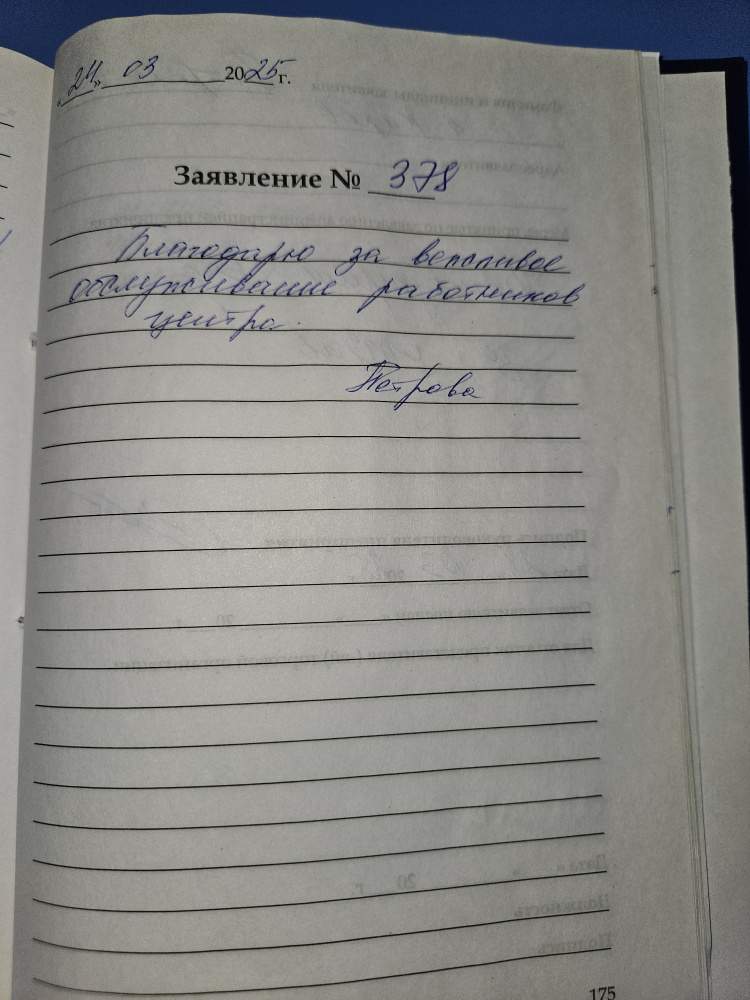 «24» 03 2025 г.
Заявление № 378
Благодарю за вежливое
обслуживание работников
центра.
Петрова
175